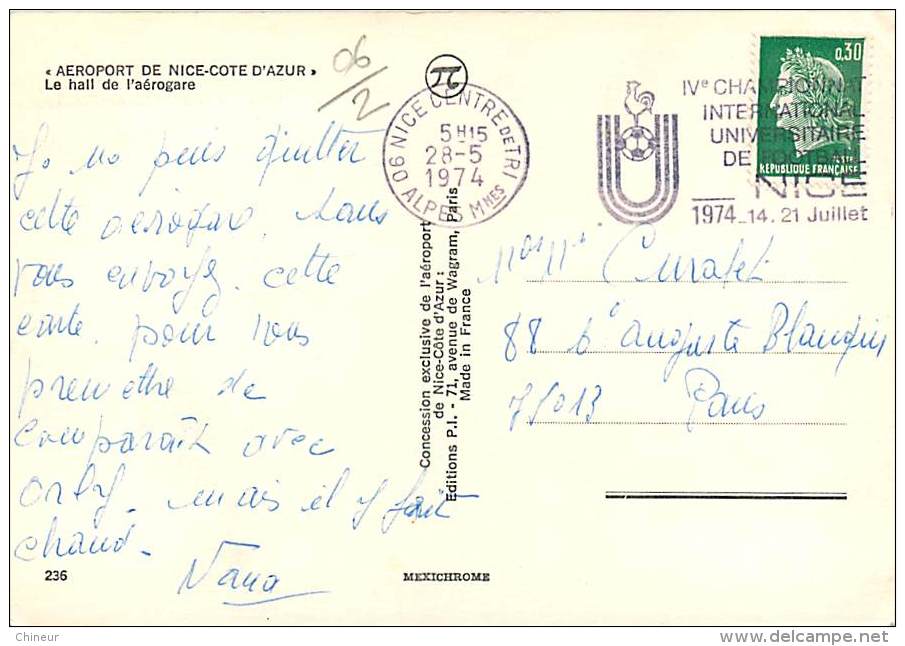 « AEROPORT DE NICE-COTE D'AZUR »
Le hall de l'aérogare
06/2
Je ne puis quitter
cette aérogare, sans
vous envoyer cette
carte. pour vous
premettre de
comparaître avec
Orly. mais il y fait
chaud.
Nana
236
06 NICE CENTRE DE TRI
5H15
28-5
1974
ALPES Mmes
IVe CHAMPIONNAT
INTERNATIONAL
UNIVERSITAIRE
DE FOOTBALL
NICE
1974_14.21 Juillet
0,30
REPUBLIQUE FRANÇAISE
Concession exclusive de l'aéroport
de Nice-Côte d'Azur :
Editions P.I. - 71, avenue de Wagram, Paris
Made in France
Curatet
88 bd auguste Blanqui
75013 Paris
MEXICHROME
Chineur
delcampe.net